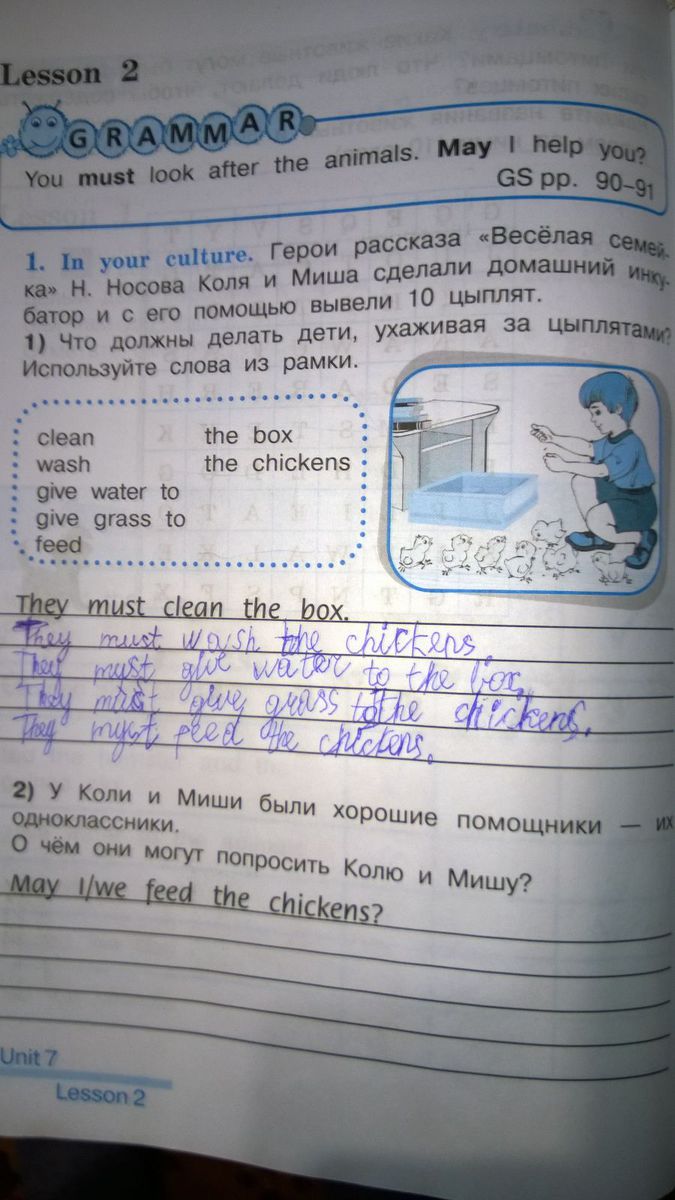 Lesson 2
GRAMMAR
You must look after the animals. May I help you?
GS pp. 90–91
1. In your culture. Герои рассказа «Весёлая семей-
ка» Н. Носова Коля и Миша сделали домашний инку-
батор и с его помощью вывели 10 цыплят.
1) Что должны делать дети, ухаживая за цыплятами?
Используйте слова из рамки.
clean the box
wash the chickens
give water to
give grass to
feed
They must clean the box.
They must wash the chickens.
They myst give water to the box.
They must give grass to the chickens.
They myst feed the chickens.
2) У Коли и Миши были хорошие помощники — их
одноклассники.
О чём они могут попросить Колю и Мишу?
May I/we feed the chickens?
Unit 7
Lesson 2